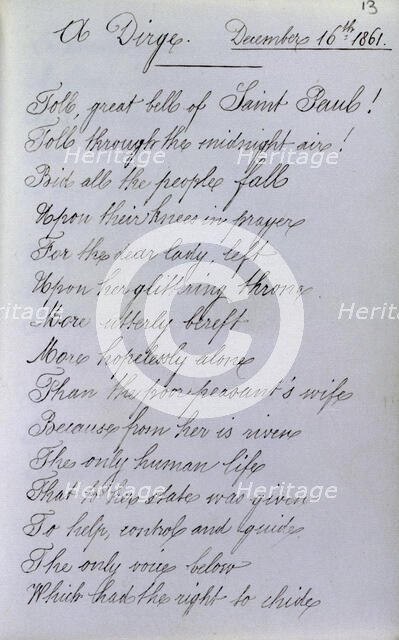 13
A Dirge. December 16th 1861.
Toll, great bell of Saint Paul!
Toll through the midnight air!
Bid all the people fall
Upon their knees in prayer
For the dear lady, left
Upon her glittering throne.
More utterly bereft
More hopelessly alone
Than the poor peasant's wife
Because from her is riven
The only human life
That to her state was given
To help, control and guide
The only voice below
Which had the right to chide
Heritage
Heritage
Heritage
Heritage
Heritage
Heritage
Heritage
Heritage
Heritage
C